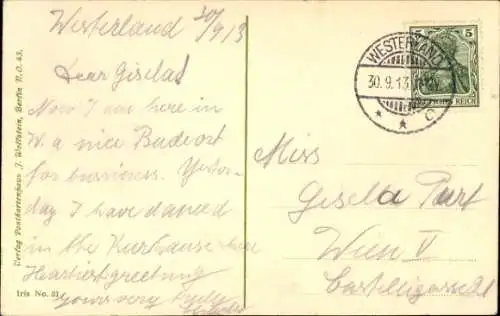 Westerland 30/9 13
Dear Gisela!
Now I am here in
W. a nice Badeort
for bussiness. Yester-
day I have danced
in the Kurhause here
Heartiest greeting
yours very
Verlag Postkartenhaus J. Wollstein, Berlin N.O. 43.
Iris No. 31
WESTERLAND
30.9.13
* * C
5
DEUTSCHES REICH
Miss
Gisela
Wien V